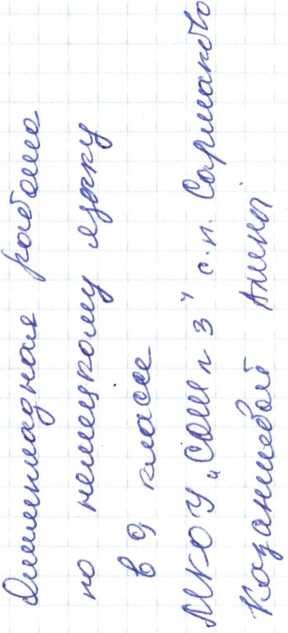 Олимпиадная работа
по немецкому языку
в 9 классе
МКОУ "СОШ №3" с.п. Сармаково
Казаншевой Амины